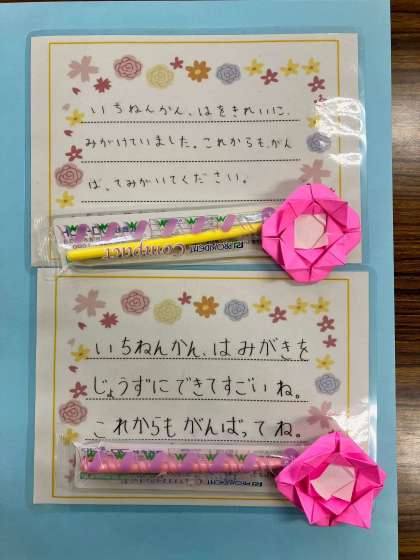 いちねんかん、はをきれいに、
みがけていました。これからも、がん
ば、てみがいてください。
PROXIDENT Compact
いちねんかん、はみがきを
じょうずにできてすごいね。
これからもがんばってね。